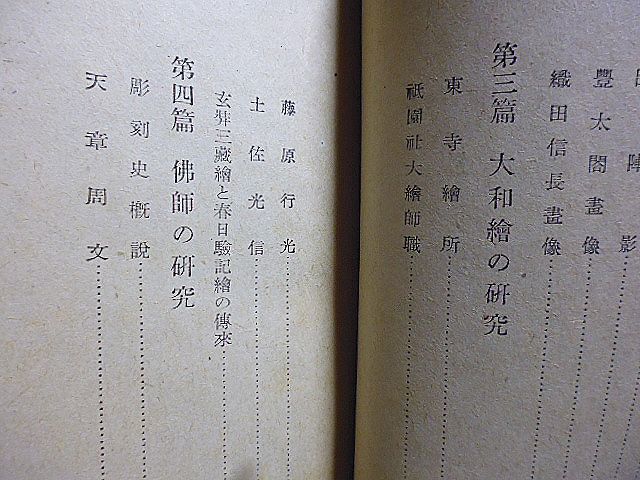 陣影
豐太閤畫像
織田信長畫像
第三篇 大和繪の硏究
東寺繪所
祗園社大繪師職
藤原行光
土佐光信
玄弉三藏繪と春日驗記繪の傳來
第四篇 佛師の硏究
彫刻史槪說
天章周文